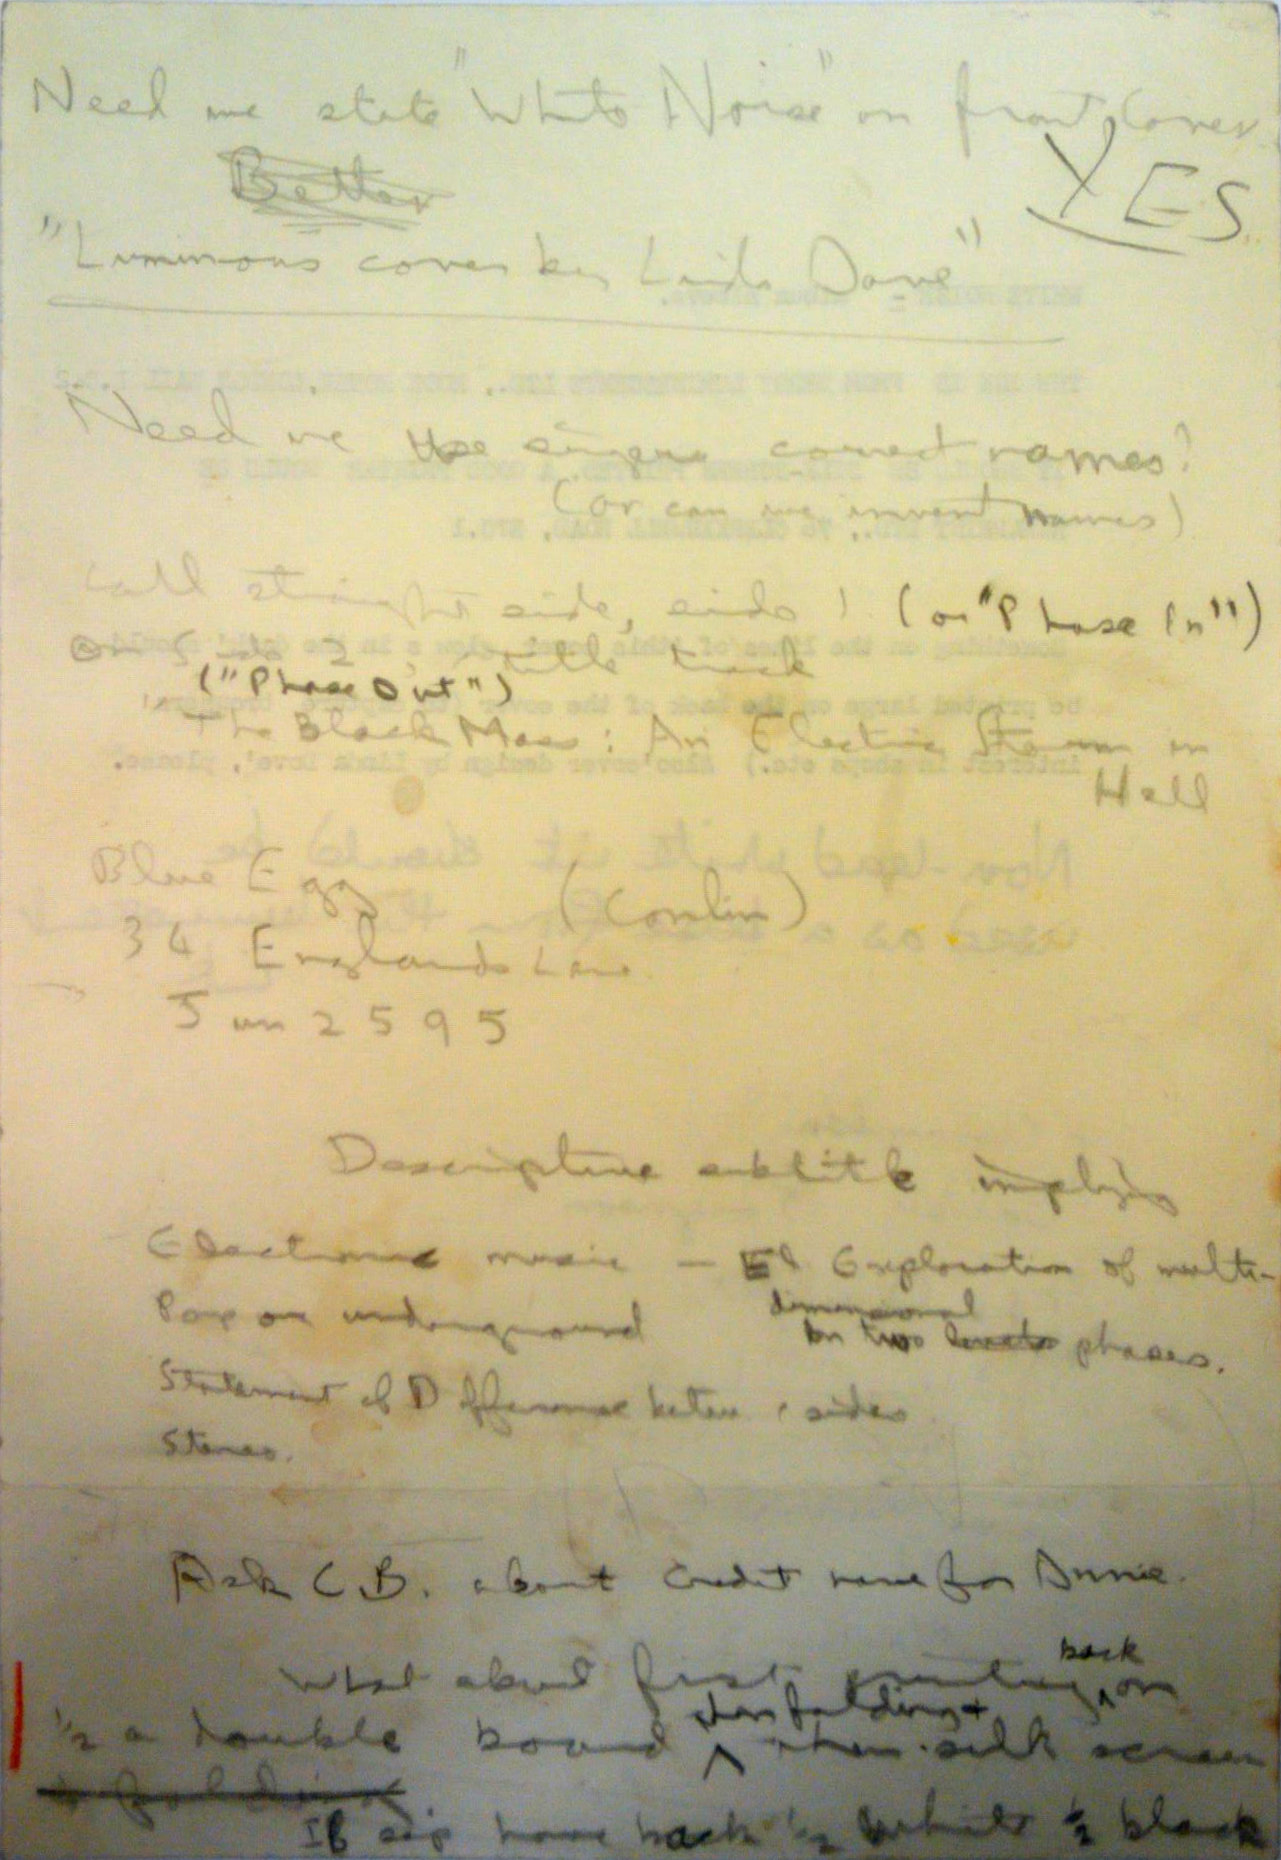 Need we state "White Noise" on front cover
YES
Better
"Luminous cover by Linda Dove"
Need we use singers correct names?
(or can we invent names)
Call straight side, side 1 (or "Phase In")
On side 2, title track
("Phase Out")
The Black Mass: An Electric Storm in
Hell
Blue Egg (Conlin)
34 Englands Lane
Jun 2595
Descriptive subtitle implying
Electronic music — El Exploration of multi-
dimensional
Pop or underground
on two levels phases.
Statement of Difference between sides
Stereo.
Ask C.B. about credit name for Annie.
What about first printing back on
1/2 a double board then folding + then silk screen
+ folding
If so have back 1/2 white 1/2 black